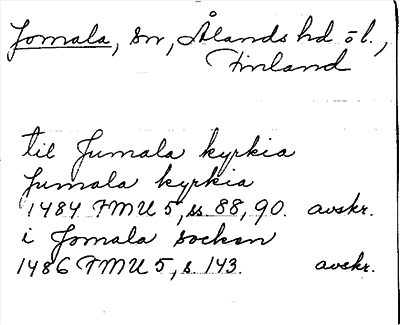 Jomala, sn, Ålands hd ö l.,
Finland
til Jumala kyrkia
Jumala kyrkia
1484 FMU 5, ss. 88, 90. avskr.
i Jomala socken
1486 FMU 5, s. 143. avskr.